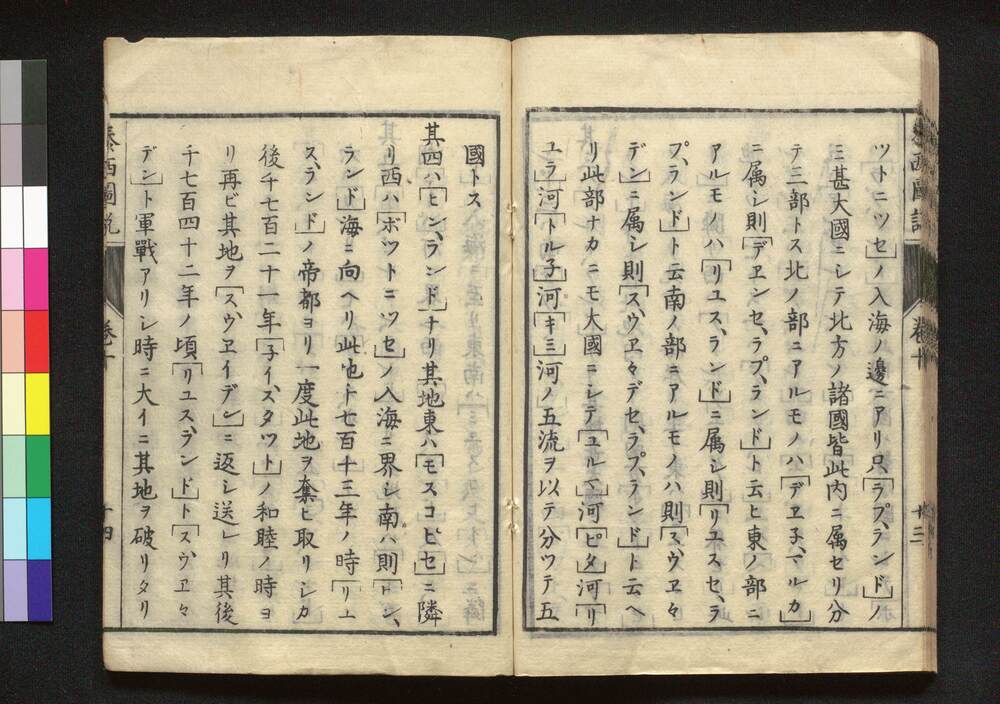 ツトニツセ」ノ入海ノ邊ニアリ只「ラプ、ランド」ノ
ミ甚大國ニシテ北方ノ諸國皆此内ニ属セリ分
テ三部トス北ノ部ニアルモノハ「デヱ子、マルカ」
ニ属シ則「デヱンセ、ラプ、ランド」ト云ヒ東ノ部ニ
アルモノハ「リユス、ランド」ニ属シ則「リユスセ、ラ
プ、ランド」ト云南ノ部ニアルモノハ則「スウヱ々
デン」ニ属シ則「スウヱ々デセ、ラプ、ランド」ト云ヘ
リ此部ナカニモ大國ニシテ「ユル」河「ピタ」河「リ
ユラ」河「トル子」河「キミ」河ノ五流ヲ以テ分ツテ五
泰西圖説
卷十
十三
國トス
其四ハ「ヒン、ランド」ナリ其地東ハ「モスコビセ」ニ隣
リ西ハ「ボツトニツセ」ノ入海ニ界シ南ハ則「ヒン、
ランド」海ニ向ヘリ此地千七百十三年ノ時「リユ
ス、ランド」ノ帝都ヨリ一度此地ヲ奪ヒ取リシカ
後千七百二十一年「子イ、スタツト」ノ和睦ノ時ヨ
リ再ビ其地ヲ「スウヱイデン」ニ返シ送レリ其後
千七百四十二年ノ頃「リユス、ランド」ト「スウヱ々
デン」ト軍戰アリシ時ニ大イニ其地ヲ破リタリ
泰西圖説
卷十
十四